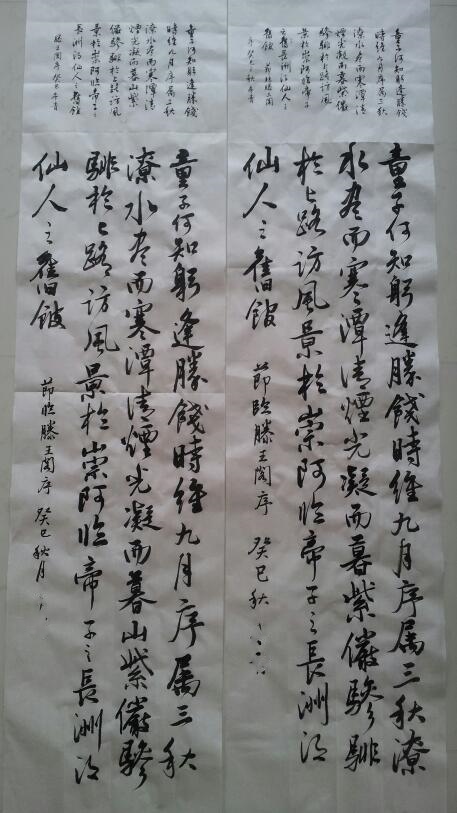 童子何知躬逢勝餞
時維九月序屬三秋
潦水盡而寒潭清
煙光凝而暮紫儼
驂騑於上路訪風
景於崇阿臨帝子
之長洲得仙人之
舊館 節臨滕王閣
序癸巳秋
童子何知躬逢勝餞時維九月序屬三秋潦
水盡而寒潭清煙光凝而暮紫儼驂騑
於上路訪風景於崇阿臨帝子之長洲得
仙人之舊館 節臨滕王閣序 癸巳秋
童子何知躬逢勝餞
時維九月序屬三秋
潦水盡而寒潭清
煙光凝而暮山紫
儼驂騑於上路訪風
景於崇阿臨帝子之
長洲得仙人之舊館
滕王閣序癸巳年
童子何知躬逢勝餞時維九月序屬三秋
潦水盡而寒潭清煙光凝而暮山紫儼驂
騑於上路訪風景於崇阿臨帝子之長洲得
仙人之舊館 節臨滕王閣序 癸巳秋月